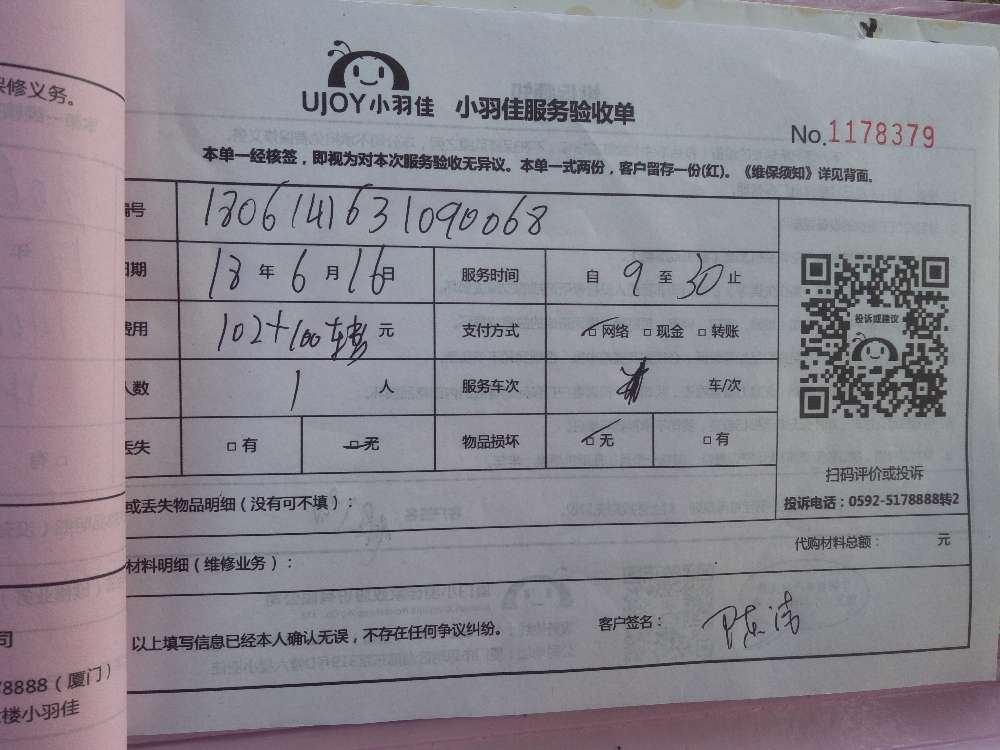 保修义务。
UJOY小羽佳 小羽佳服务验收单
No.1178379
本单一经核签，即视为对本次服务验收无异议。本单一式两份，客户留存一份(红)。《维保须知》详见背面。
编号 1806141631090068
日期 18年6月16日 服务时间 自9至30止
费用 102+100转元 支付方式 □网络 □现金 □转账
人数 1人 服务车次 车/次
丢失 □有 □无 物品损坏 □无 □有
投诉或建议
扫码评价或投诉
投诉电话：0592-5178888转2
或丢失物品明细（没有可不填）：
代购材料总额： 元
材料明细（维修业务）：
以上填写信息已经本人确认无误，不存在任何争议纠纷。 客户签名：
司
78888（厦门）
楼小羽佳